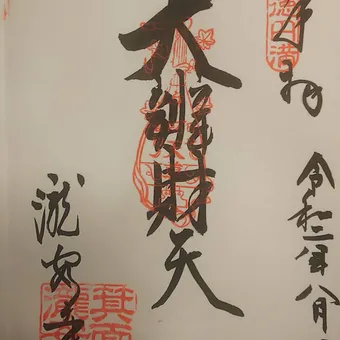 奉拝
令和二年八月
大辨財天
瀧安寺